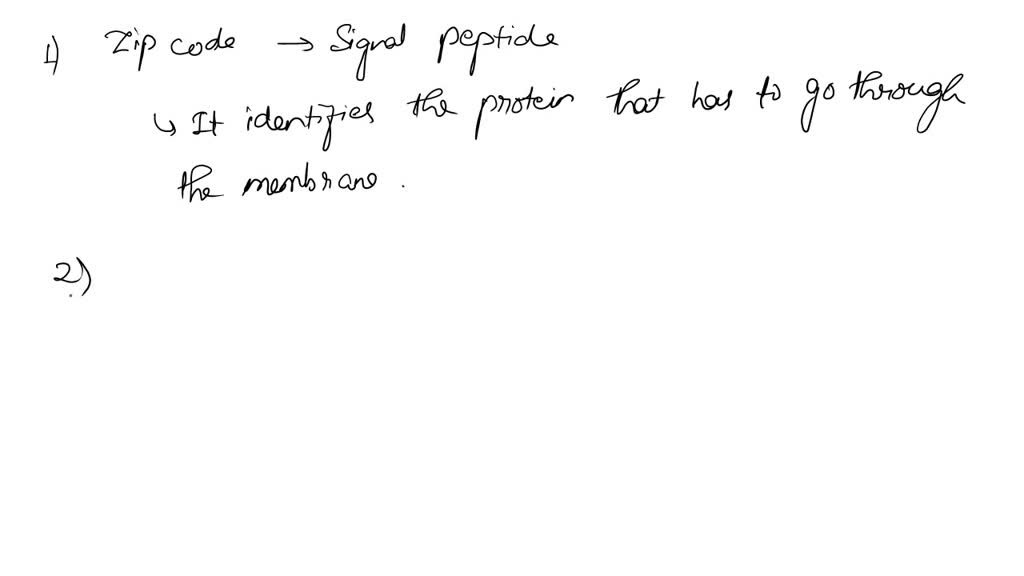 1) Zip code → Signal peptide
↳ It identifies the protein that has to go through
the membrane.
2)